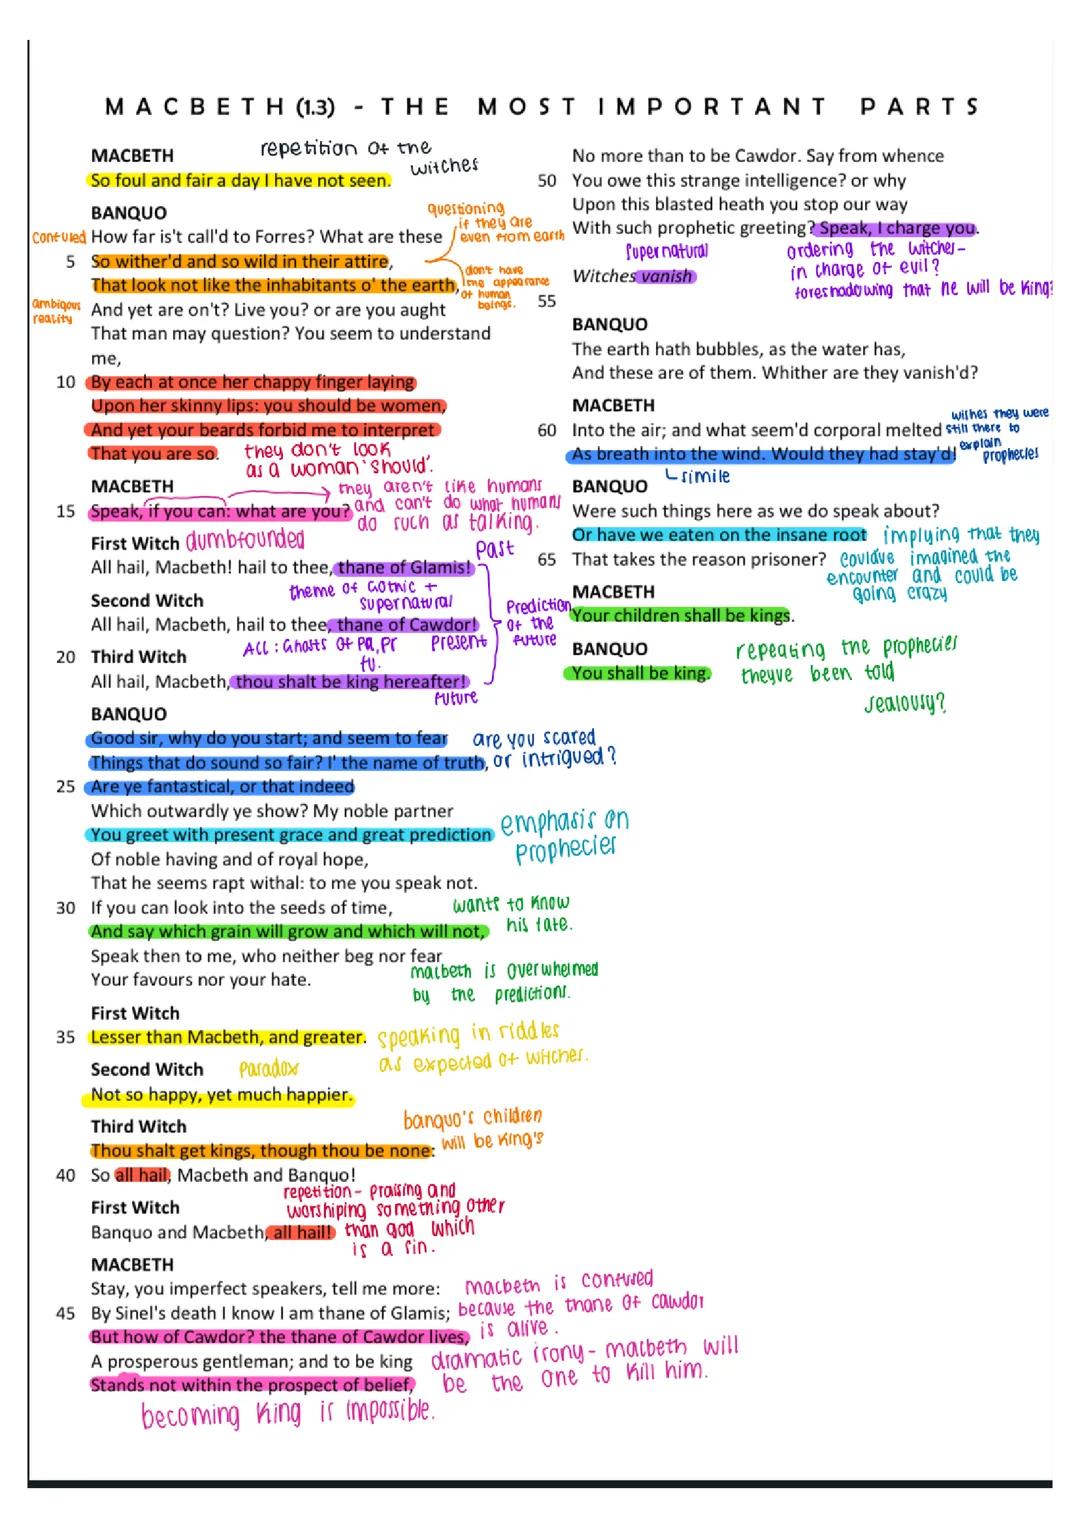 MACBETH (1.3) - THE MOST IMPORTANT PARTS
MACBETH
repetition of the
witches
So foul and fair a day I have not seen.
BANQUO
questioning
if they are
even from earth
confused
How far is't call'd to Forres? What are these
5 So wither'd and so wild in their attire,
That look not like the inhabitants o' the earth,
don't have
the appearance
of human
beings.
ambigous
reality
And yet are on't? Live you? or are you aught
That man may question? You seem to understand
me,
10 By each at once her chappy finger laying
Upon her skinny lips: you should be women,
And yet your beards forbid me to interpret
That you are so.
they don't look
as a woman 'should'.
MACBETH
they aren't like humans
and can't do what humans
do such as talking.
15 Speak, if you can: what are you?
First Witch
dumbfounded
All hail, Macbeth! hail to thee, thane of Glamis!
Past
theme of Gothic +
supernatural
Second Witch
All hail, Macbeth, hail to thee, thane of Cawdor!
Prediction
of the
future
ACC: Ghosts of Pa, Pr
fu.
Present
20 Third Witch
All hail, Macbeth, thou shalt be king hereafter!
future
BANQUO
Good sir, why do you start; and seem to fear
Things that do sound so fair? I' the name of truth,
are you scared
or intrigued?
25 Are ye fantastical, or that indeed
Which outwardly ye show? My noble partner
You greet with present grace and great prediction
emphasis on
prophecies
Of noble having and of royal hope,
That he seems rapt withal: to me you speak not.
30 If you can look into the seeds of time,
And say which grain will grow and which will not,
wants to know
his fate.
Speak then to me, who neither beg nor fear
Your favours nor your hate.
macbeth is overwhelmed
by the predictions.
First Witch
35 Lesser than Macbeth, and greater.
speaking in riddles
as expected of witches.
Second Witch
Paradox
Not so happy, yet much happier.
Third Witch
banquo's children
will be king's
Thou shalt get kings, though thou be none:
40 So all hail, Macbeth and Banquo!
First Witch
repetition - praising and
worshiping something other
than god which
is a sin.
Banquo and Macbeth, all hail!
MACBETH
Stay, you imperfect speakers, tell me more:
45 By Sinel's death I know I am thane of Glamis;
But how of Cawdor? the thane of Cawdor lives,
macbeth is confused
because the thane of cawdor
is alive.
A prosperous gentleman; and to be king
Stands not within the prospect of belief,
dramatic irony - macbeth will
be the one to kill him.
becoming King is impossible.
No more than to be Cawdor. Say from whence
50 You owe this strange intelligence? or why
Upon this blasted heath you stop our way
With such prophetic greeting? Speak, I charge you.
supernatural
ordering the witches -
in charge of evil?
foreshadowing that he will be King?
Witches vanish
55
BANQUO
The earth hath bubbles, as the water has,
And these are of them. Whither are they vanish'd?
MACBETH
60 Into the air; and what seem'd corporal melted
As breath into the wind. Would they had stay'd!
wishes they were
still there to
explain
prophecies
simile
BANQUO
Were such things here as we do speak about?
Or have we eaten on the insane root
65 That takes the reason prisoner?
implying that they
couldve imagined the
encounter and could be
going crazy
MACBETH
Your children shall be kings.
BANQUO
You shall be king.
repeating the prophecies
theyve been told
Jealousy?